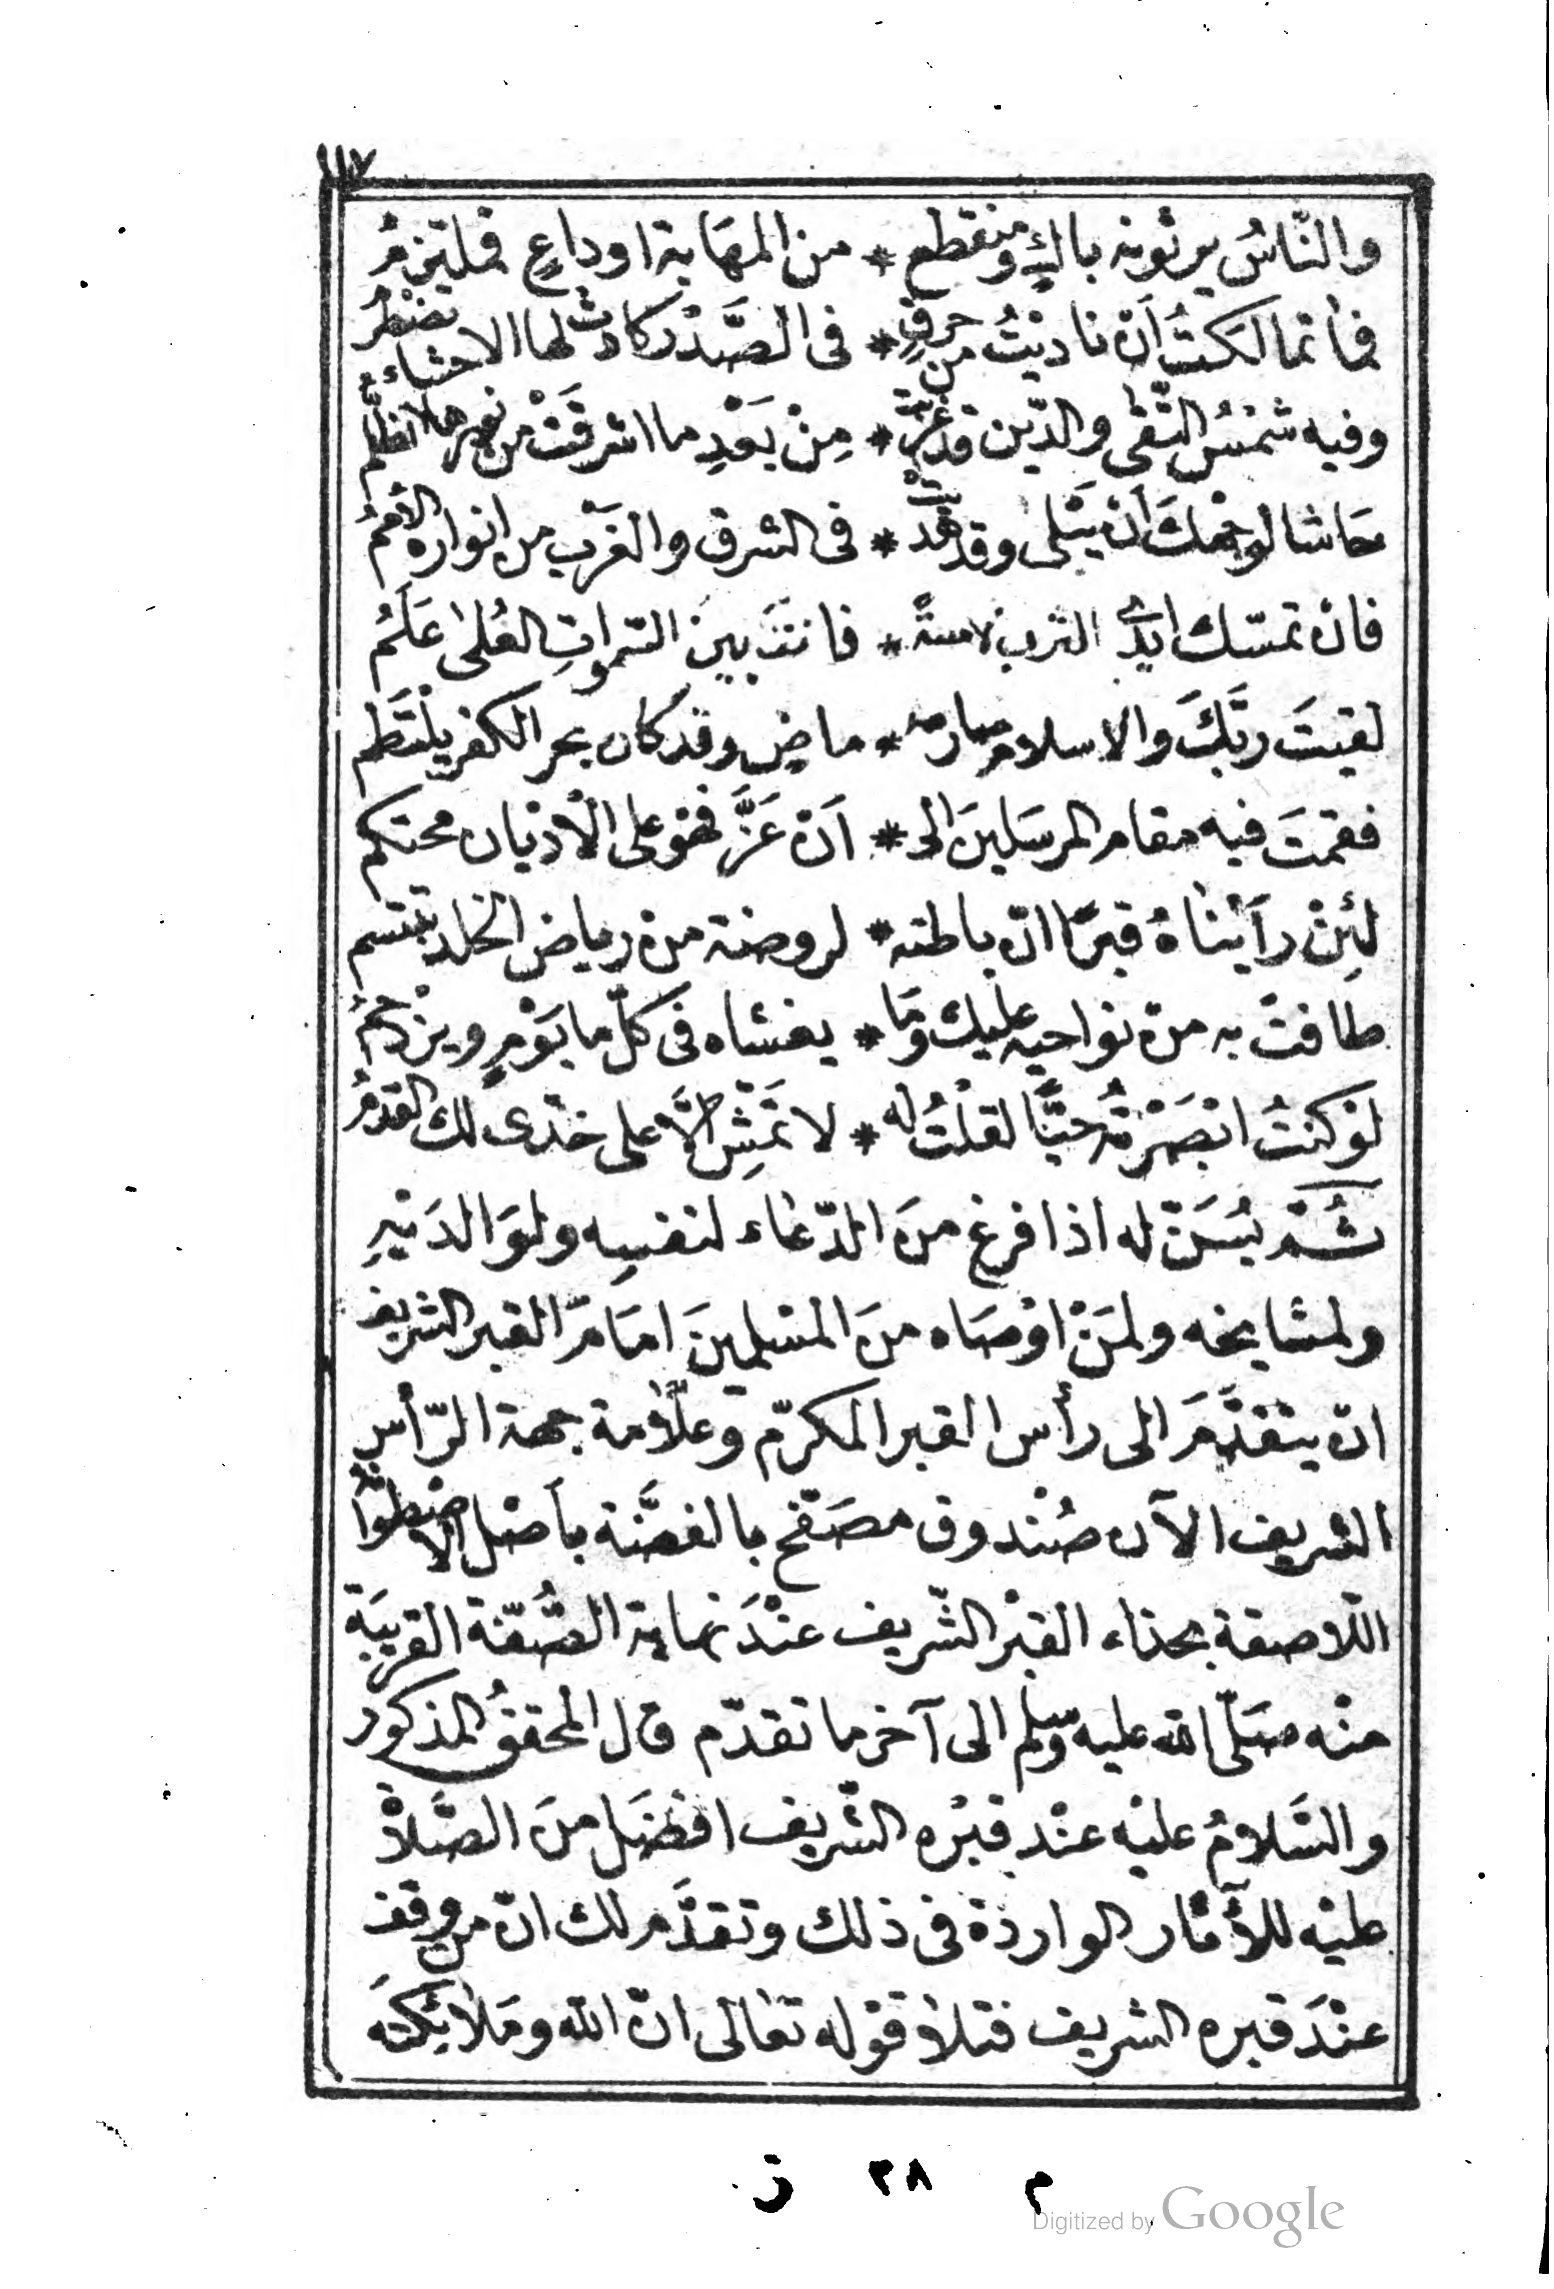 ١١٧
والنّاسُ يرثونه باكٍ ومنقطع * من المهابة او داعٍ فملتزمُ
فما تمالكتُ اَنْ ناديتُ من حرقٍ * فى الصَّدْر كادتْ لها الاحشاء تضطرمُ
وفيه شمْسُ التّقٰى والدّين قد غرُبَتْ * مِنْ بَعْدِ ما اشرقَتْ من نورها الظلَمُ
حَاشا لوجْهك اَنْ يَبْلٰى وقد هُديتْ * فى الشرق والغَرْب من انواره الأممُ
فان تمسّك ايدى الترب لامسةً * فانت بينَ السّمواتِ العُلىٰ عَلَمُ
لقيتَ ربَّكَ والاسلام صارمه * ماضٍ وقد كان بحر الكفر يلْتَطم
فقمتَ فيه مقام المرسَلينَ الى * اَنْ عَزَّ فهو على الْاَدْيان محتكم
لئِنْ رأيْناهُ قبرًا انّ باطنه * لروضة من رياض الخلد تبتسم
طافتْ به من نواحيه ملئك وَمَا * يغشاه فى كلّ ما يَوْمٍ ويزْدحمُ
لوْ كنتُ ابْصَرْتُه حَيًّا لقلْتُ له * لا تَمْشِ الّا على خدّى لك القدمُ
ثُمَّ يُسَنّ له اذا فرغ منَ الدّعاء لنفسِه ولوَالدَيْهِ
ولمشايخه ولمَنْ اوْصَاه منَ المسْلمِينَ امَامَ القبر الشريف
انْ يتقدَّمَ الى رأس القبر المكرّم وعلَامة جهة الرّأسِ
الشريف الآن صُنْدوق مصَفّح بالفضَّة بأصْل الاصْطوانة
اللّاصقة بحذاء القبْر الشّريف عنْدَ نهاية الصُّفّة القريبَة
منْه صَلّى الله عليه وسلم الى آخر ما تقدّم قال المحققُ المذكور
والسَّلامُ عليْه عنْد قبْره الشّريف افْضَل منَ الصَّلاةْ
عليْه للأثار الواردة فى ذلك وتقدَّم لك انّ من وقف
عنْدَ قبره الشريف فتلا قوْله تعَالى انّ الله ومَلائِكته
م ٣٨ ز
Digitized by Google